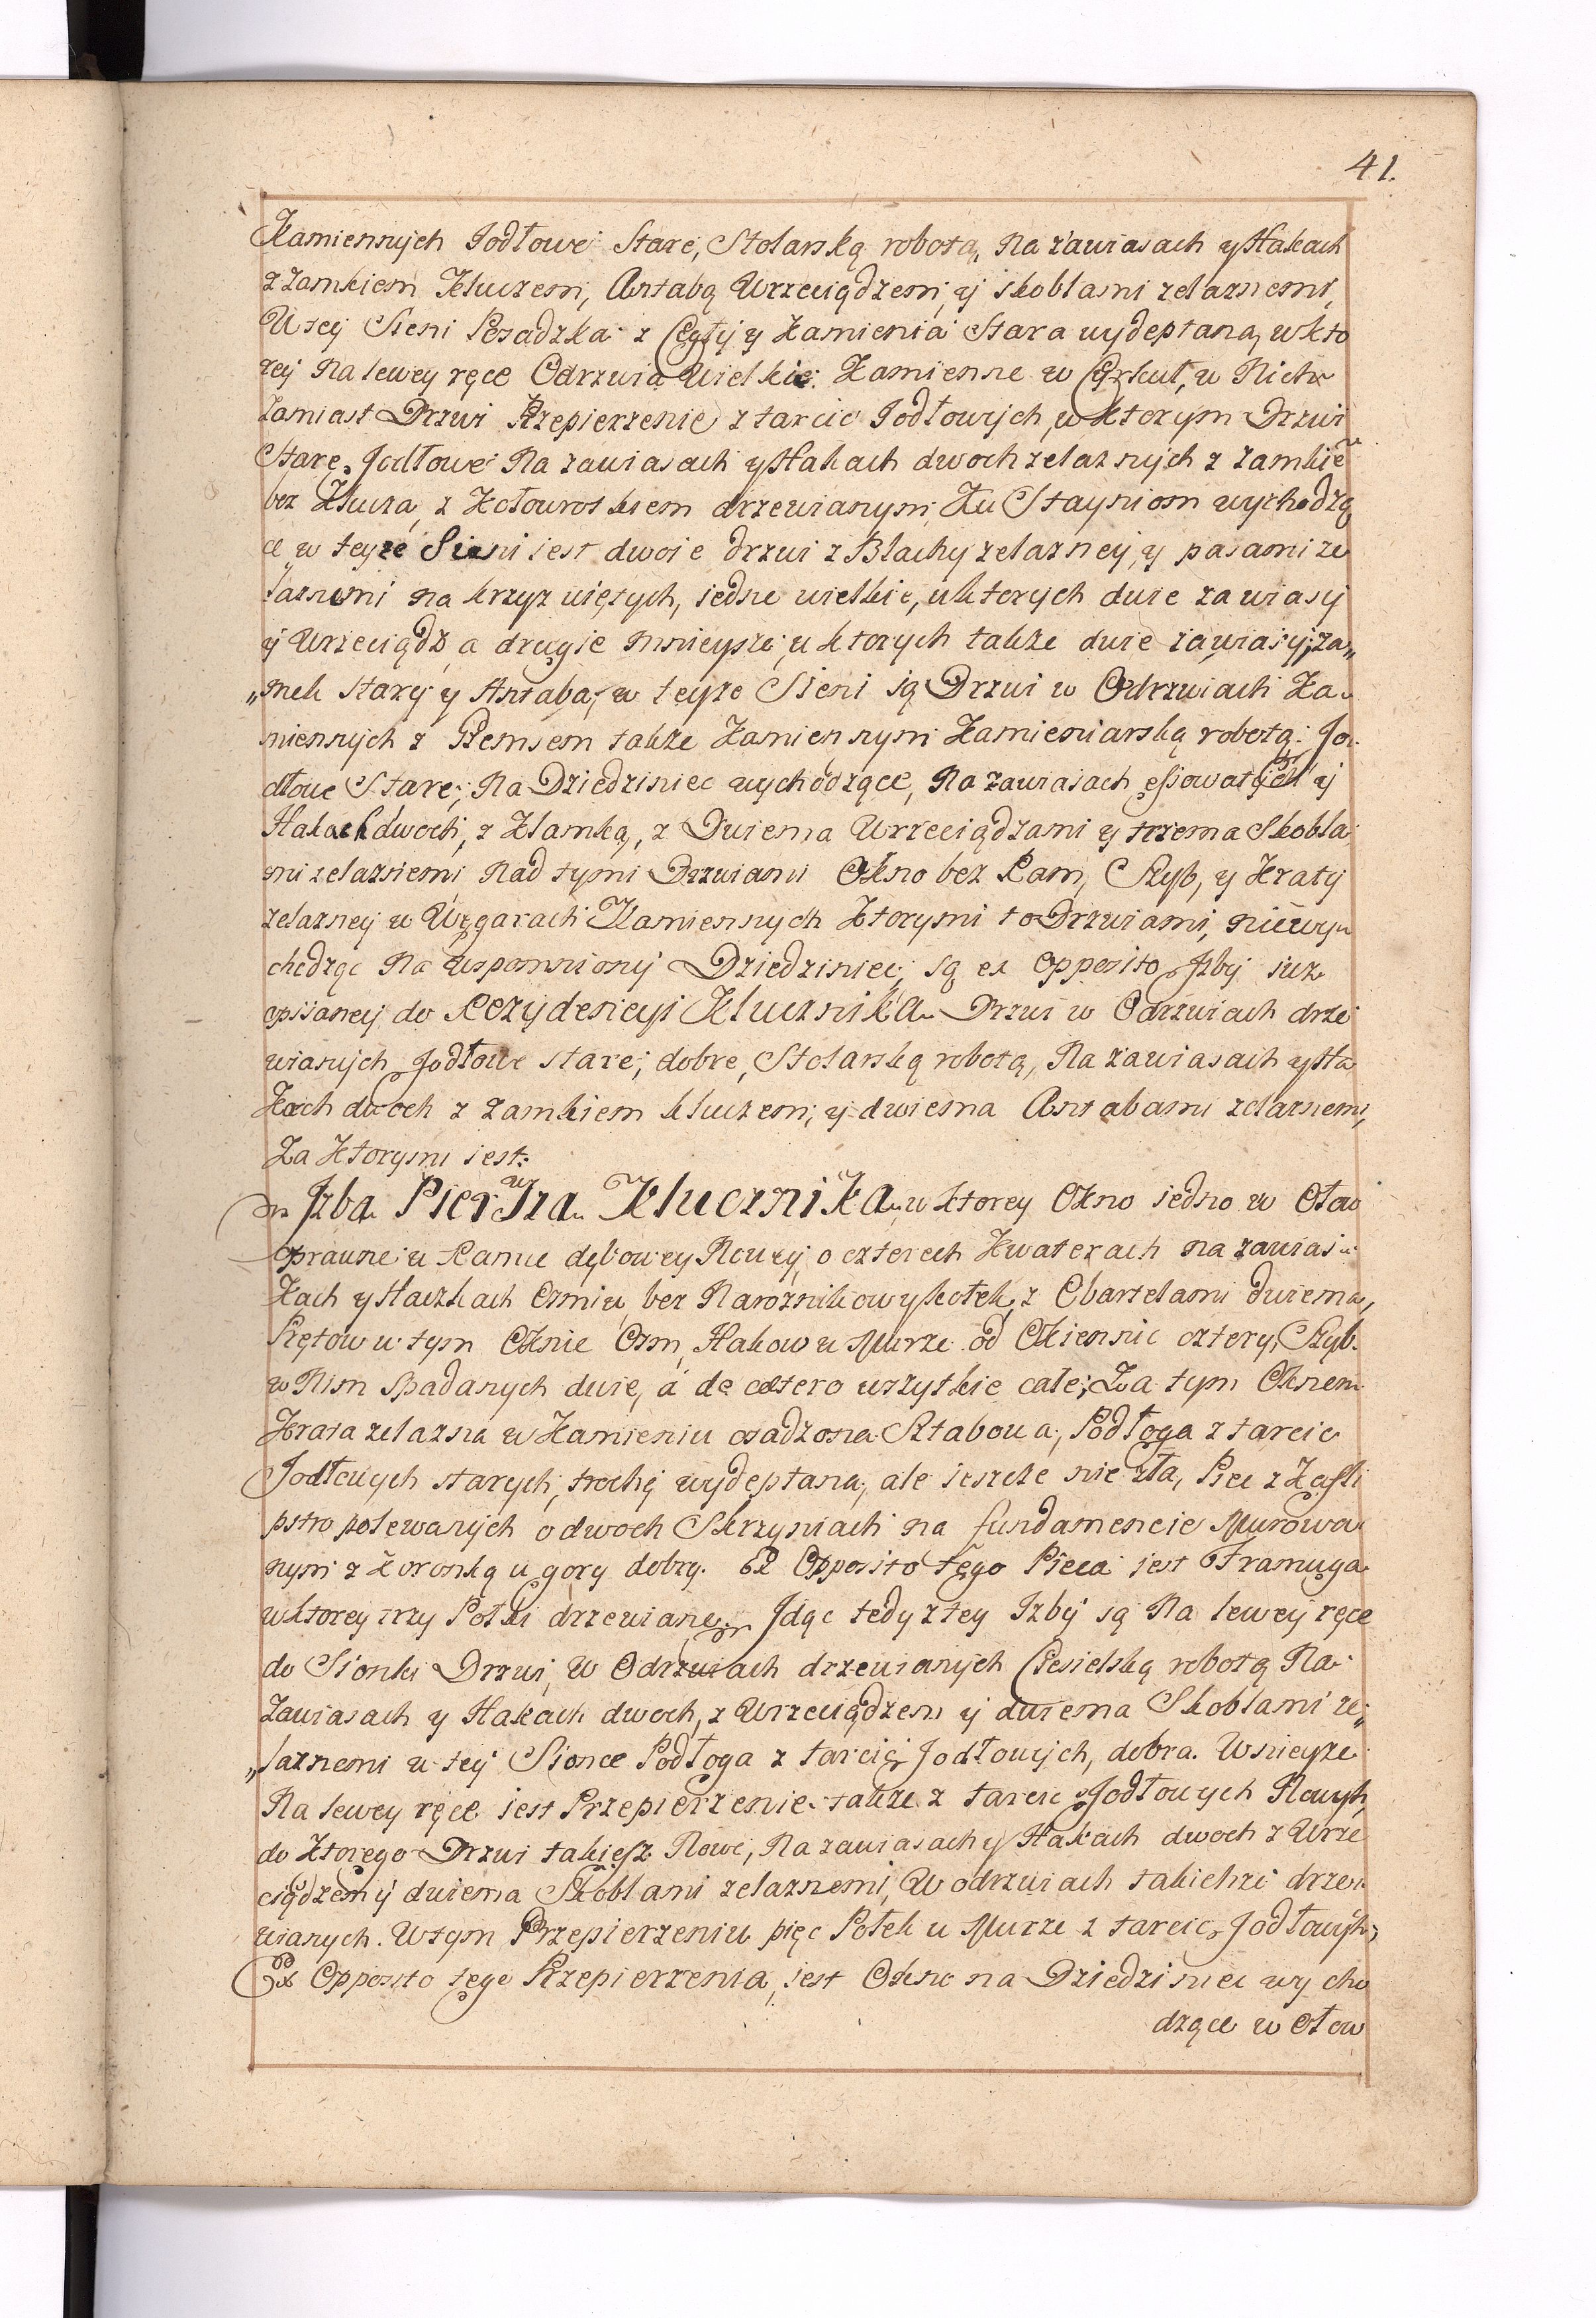 41.
Kamiennych Jodłowe Stare, Stolarską robotą, Na zawiasach y Hakach
z zamkiem Kluczem, Antabą Wrzeciądzem, y skoblami zelaznemi,
W tey Sieni Posadzka z Cegły y Kamienia Stara wydeptana, w kto
rey Na lewey ręce Odrzwia Wielkie Kamienne w Cyrkuł, w Nich
zamiast Drzwi Przepierzenie z tarcic Jodłowych, w ktorym Drzwi
Stare Jodłowe Na zawiasach y Hakach dwoch zelaznych z zamkiē
bez Klucza, z Kołowrotkiem drzewianym, Ku Stayniom wychodzą
ce w teyze Sieni iest dwoie drzwi z Blachy zelazney, y pasami ze
laznemi na krzyz więtych, iedne wielkie, u ktorych dwie zawiasy
y Wrzeciądz, a drugie mnieysze, u ktorych takze dwie zawiasy, za„
„mek stary y Antaba, w teyze Sieni są Drzwi w Odrzwiach Ka
miennych z Gzemsem takze Kamiennym Kamieniarską robotą. Jo
dłowe Stare, Na Dziedziniec wychodzące, Na zawiasach essowatych y
Hakach dwoch, z Klamką, z Dwiema Wrzeciądzami y trzema Skobla
mi zelaznemi Nad tymi Drzwiami Okno bez Ram, Szyb, y Kraty
zelazney w Węgarach Kamiennych Ktorymi to Drzwiami, niewy
chodząc Na wspomniony Dziedziniec, są ex opposito Izby iuz
opisaney do Rezydencyi Klucznika Drzwi w Odrzwiach drze
wianych Jodłowe stare, dobre, Stolarską robotą, Na zawiasach y Ha
Kach dwoch z zamkiem kluczem, y dwiema Antabami zelaznemi,
Za Ktorymi iest:
Izba Pierwsza Klucznika w ktorey Okno iedno w Ołow
oprawne w Ramie dębowey Nowey, o czterech Kwaterach na zawias
Kach y Haczkach Osmiu, bez Naroznikow y kołek, z Obartelami dwiema,
Prętow w tym Oknie Osm, Hakow w Murze od Okiennic cztery, Szyb
w Nim Spadanych dwie, a de caetero wszytkie całe, Za tym Oknem
Krata zelazna w Kamieniu osadzona Sztabowa, Podłoga z tarcic
Jodłowych starych, trochę wydeptana, ale ieszcze nie zła, Piec z Kafli
pstro polewanych o dwoch Skrzyniach na fundamencie Murowa
nym z Koronką u gory dobry. Ex Opposito tego Pieca iest Framuga
w ktorey trzy Połki drzewiane. Idąc tedy z tey Izby są Na lewey ręce
do Sionki Drzwi, w Odrzwiach drzewianych Ciesielską robotą Na
Zawiasach y Hakach dwoch, z Wrzeciądzem y dwiema Skoblami ze„
„laznemi w tey Sionce Podłoga z tarcic Jodłowych, dobra. W nieyze
Na lewey ręce iest Przepierzenie takze z tarcic Jodłowych Nowych,
do Ktorego Drzwi takiesz Nowe, Na zawiasach y Hakach dwoch z Wrze
ciądzem y dwiema Skoblami zelaznemi, W odrzwiach takichze drze
wianych. W tym Przepierzeniu pięc Połek w Murze z tarcic Jodłowych,
Ex Opposito tego Przepierzenia, iest Okno na Dziedziniec wycho
dzące w Ołow